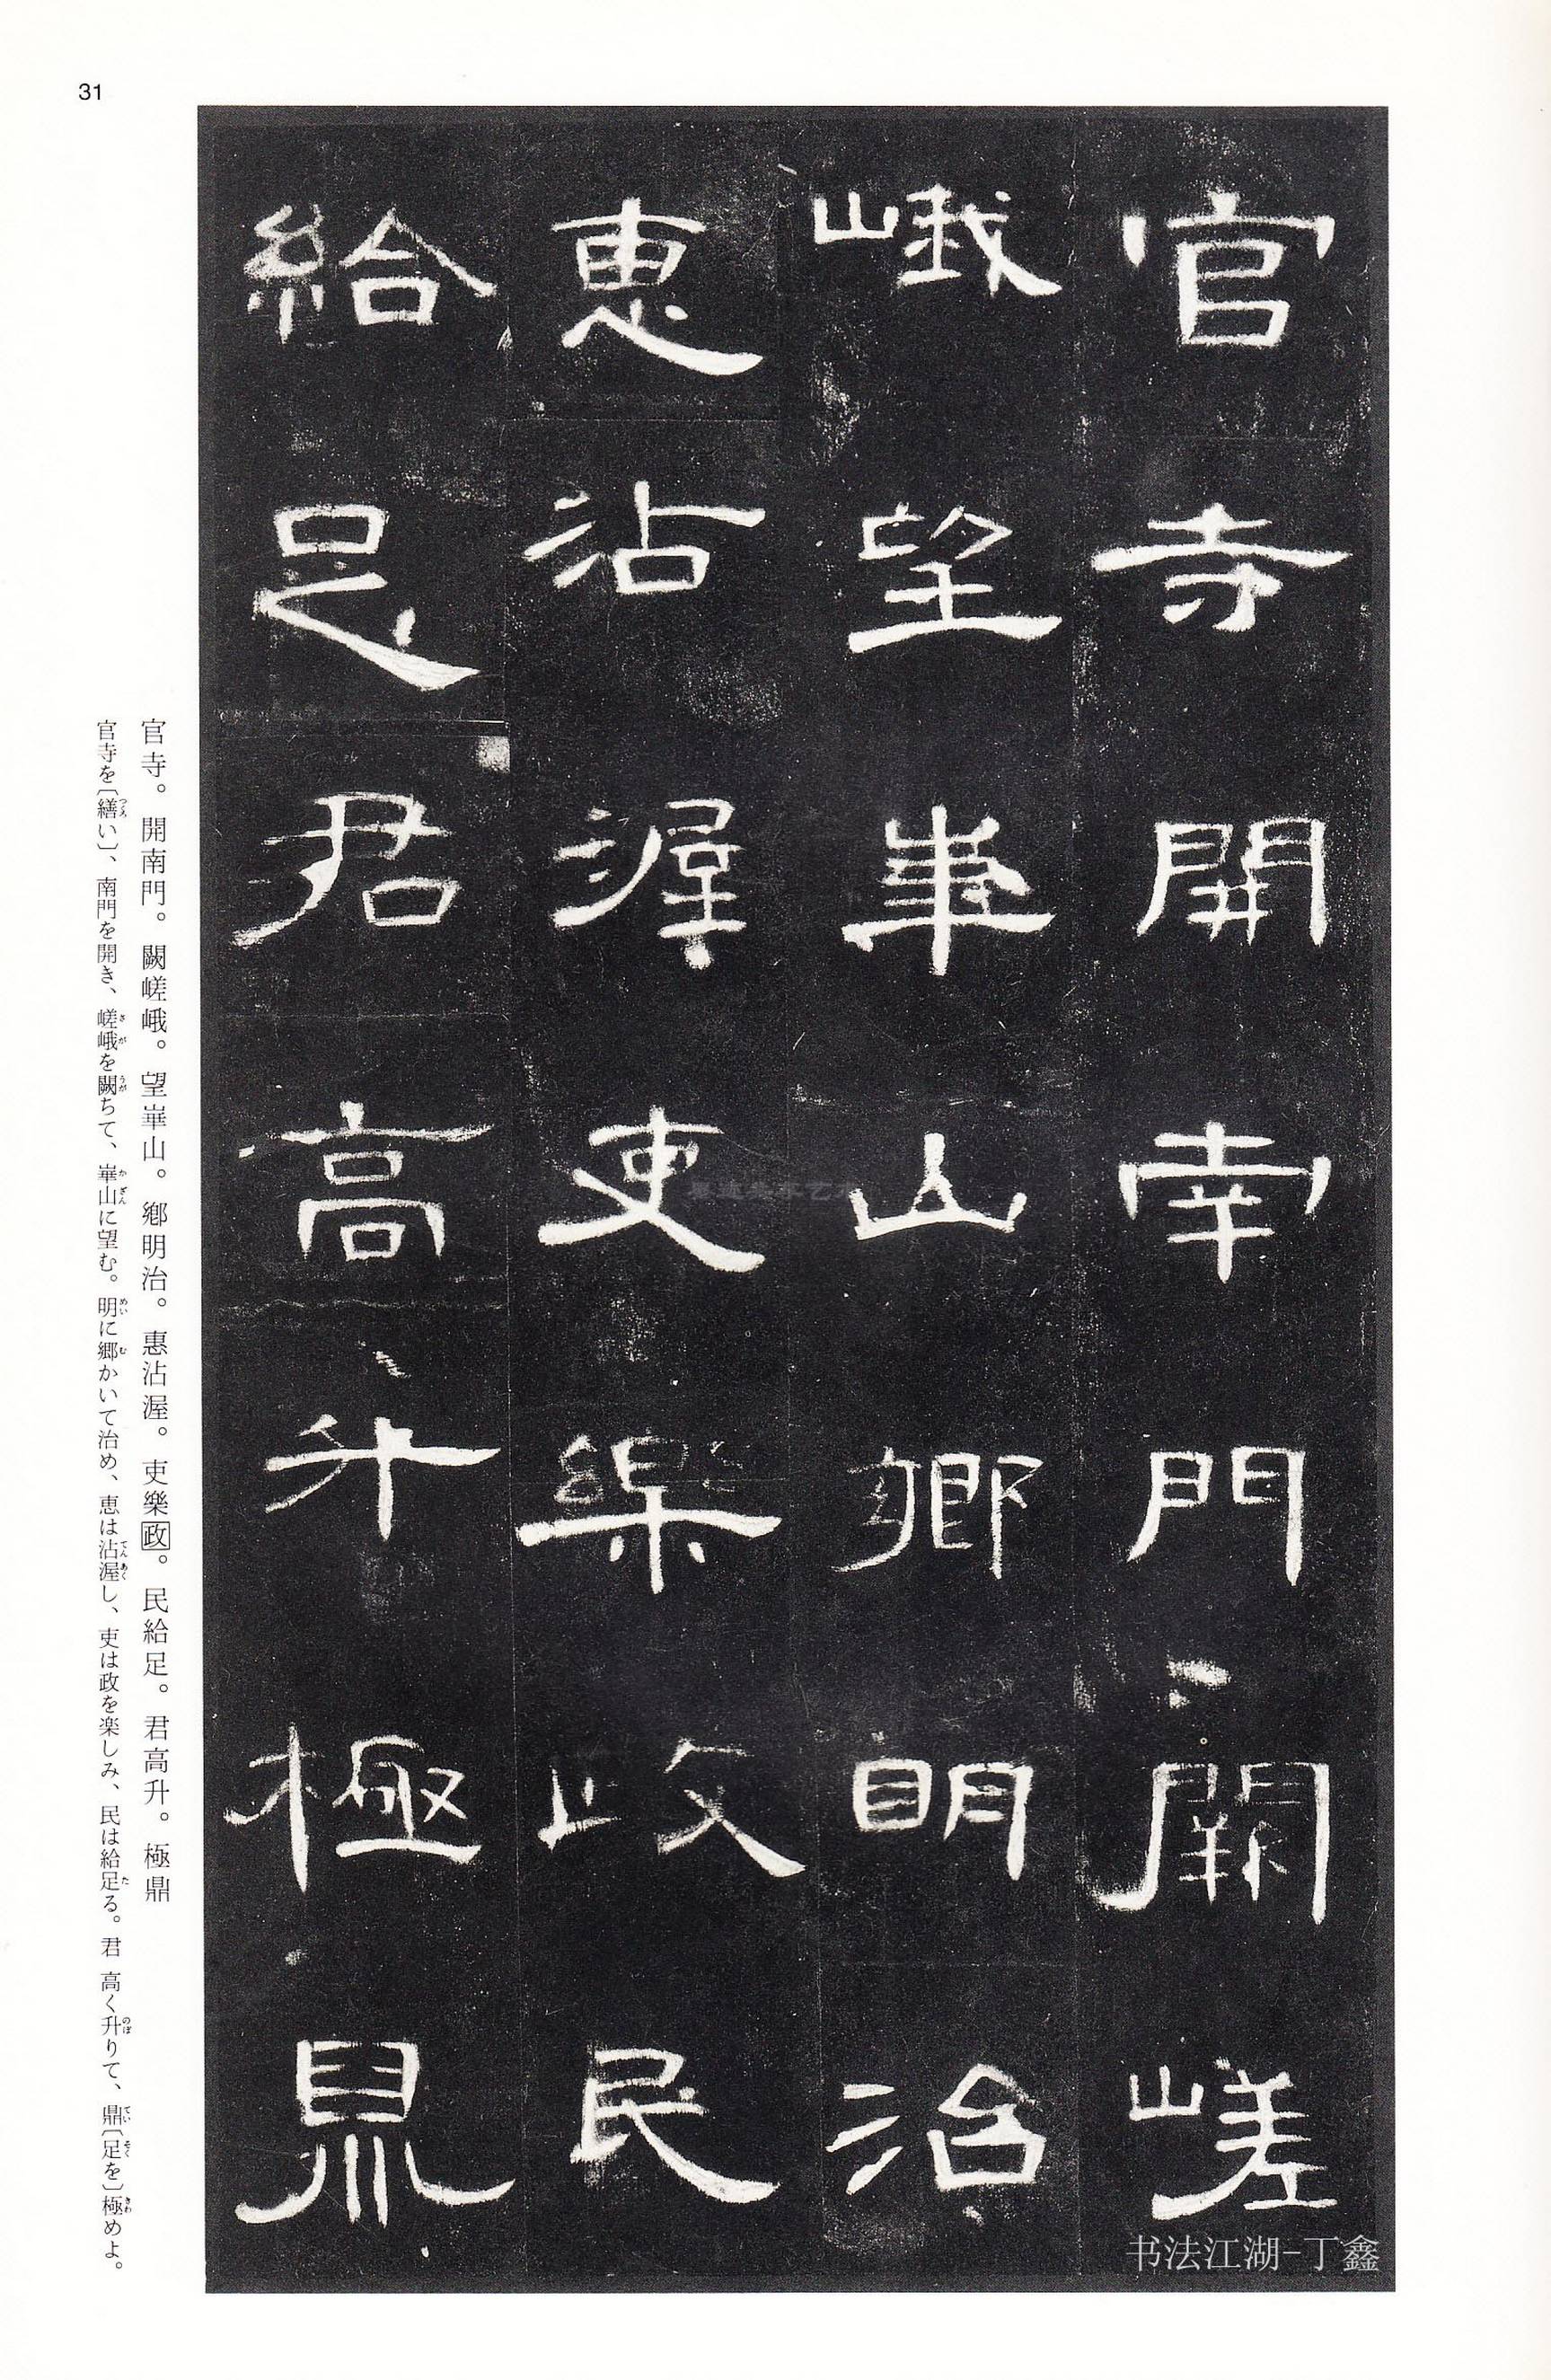 31
官寺開南門闕嵯
峨望崋山鄉明治
惠沾渥吏樂政民
給足君高升極鼎
官寺。開南門。闕嵯峨。望崋山。鄉明治。惠沾渥。吏樂政。民給足。君高升。極鼎
官寺を〔繕い〕、南門を開き、嵯峨を闕ちて、崋山に望む。明に郷かいて治め、恵は沾渥し、吏は政を楽しみ、民は給足る。君 高く升りて、鼎〔足を〕極めよ。
书法江湖-丁鑫